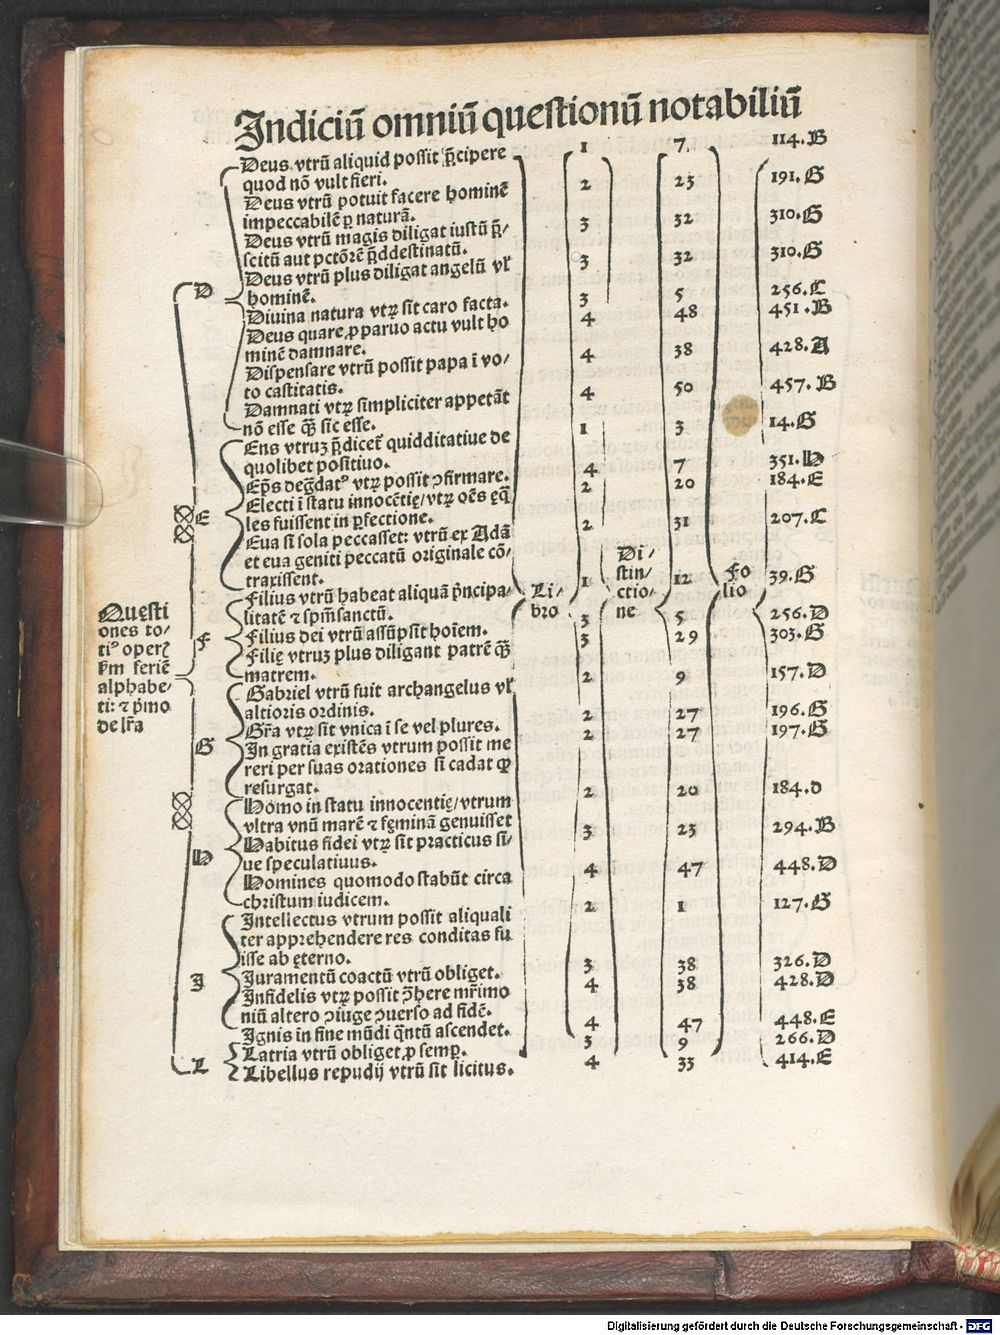 Indiciū omniū questionū notabiliū
Deus vtrū aliquid possit p̄cipere 1 7 114.B
quod nō vult fieri.
Deus vtrū potuit facere hominē 2 23 191.G
impeccabilē ꝑ naturā.
Deus vtrū magis diligat iustū p̄/ 3 32 310.G
scitū aut pctōrē p̄ddestinatū.
Deus vtrū plus diligat angelū vl̓ 3 32 310.G
D hominē.
Diuina natura vtꝝ sit caro facta. 3 5 256.C
Deus quare, ꝓ paruo actu vult ho 4 48 451.B
minē damnare.
Dispensare vtrū possit papa ī vo/ 4 38 428.A
to castitatis.
Damnati vtꝝ simpliciter appetāt 4 50 457.B
nō esse q̄ꝫ sic esse.
Ens vtruꝫ p̄dicet̄ quidditatiue de 1 3 14.G
quolibet positiuo.
Ep̄s deg̃datꝰ vtꝝ possit ꝯfirmare. 4 7 351.H
Electi ī statu innocētię/vtꝝ oēs ęq̄ 2 20 184.E
E les fuissent in ꝑfectione.
Eua si sola peccasset: vtrū ex Adā 2 31 207.C
et eua geniti peccatū originale cō/
traxissent.
Filius vtrū habeat aliquā p̄ncipa/ 1 12 39.G
litatē ⁊ spm̄sanctū.
Filius dei vtrū assūpsit hoīem. 3 5 256.D
F Filię vtruꝫ plus diligant patrē q̄ꝫ 3 29 303.G
matrem.
Gabriel vtrū fuit archangelus vl̓ 2 9 157.D
altioris ordinis.
Gr̄a vtꝝ sit vnica ī se vel plures. 2 27 196.G
G In gratia existēs vtrum possit me 2 27 197.G
reri per suas orationes si cadat ꝙ
resurgat.
Homo in statu innocentię/vtrum 2 20 184.d
vltra vnū marē ⁊ fęminā genuisset
Habitus fidei vtꝝ sit practicus si/ 3 23 294.B
H ue speculatiuus.
Homines quomodo stabūt circa 4 47 448.D
christum iudicem.
Intellectus vtrum possit aliquali 2 1 127.G
ter apprehendere res conditas fu
isse ab ęterno.
I Iuramentū coactū vtrū obliget. 3 38 326.D
Infidelis vtꝝ possit ꝯ̄here mr̄imo 4 38 428.D
niū altero ꝯiuge ꝯuerso ad fidē.
Ignis in fine mūdi q̄ntū ascendet. 4 47 448.E
Latria vtrū obliget, ꝓ semꝑ. 3 9 266.D
L Libellus repudij vtrū sit licitus. 4 33 414.E
Questi
ones to/
tiꝰ operꝭ
km̄ seriē
alphabe/
ti: ⁊ p̄mo
de lr̄a
Li/
bro
Di/
stin/
ctio/
ne
Fo
lio
Digitalisierung gefördert durch die Deutsche Forschungsgemeinschaft - DFG